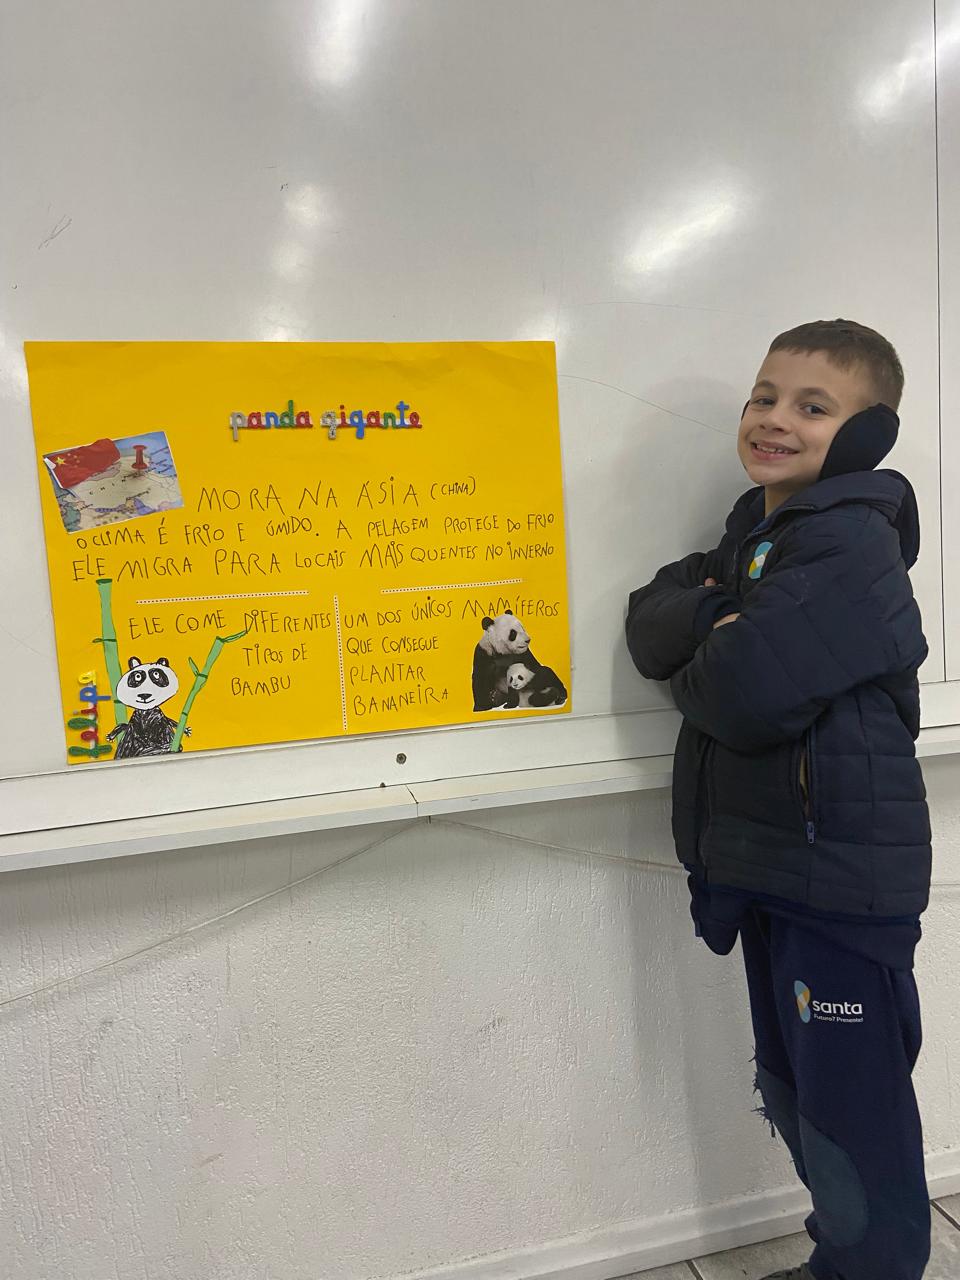 panda gigante
MORA NA ÁSIA (CHINA)
O CLIMA É FRIO E ÚMIDO. A PELAGEM PROTEGE DO FRIO
ELE MIGRA PARA LOCAIS MAIS QUENTES NO INVERNO
ELE COME DIFERENTES
TIPOS DE
BAMBU
UM DOS ÚNICOS MAMÍFEROS
QUE CONSEGUE
PLANTAR
BANANEIRA
felipe
santa
Futuro? Presente!